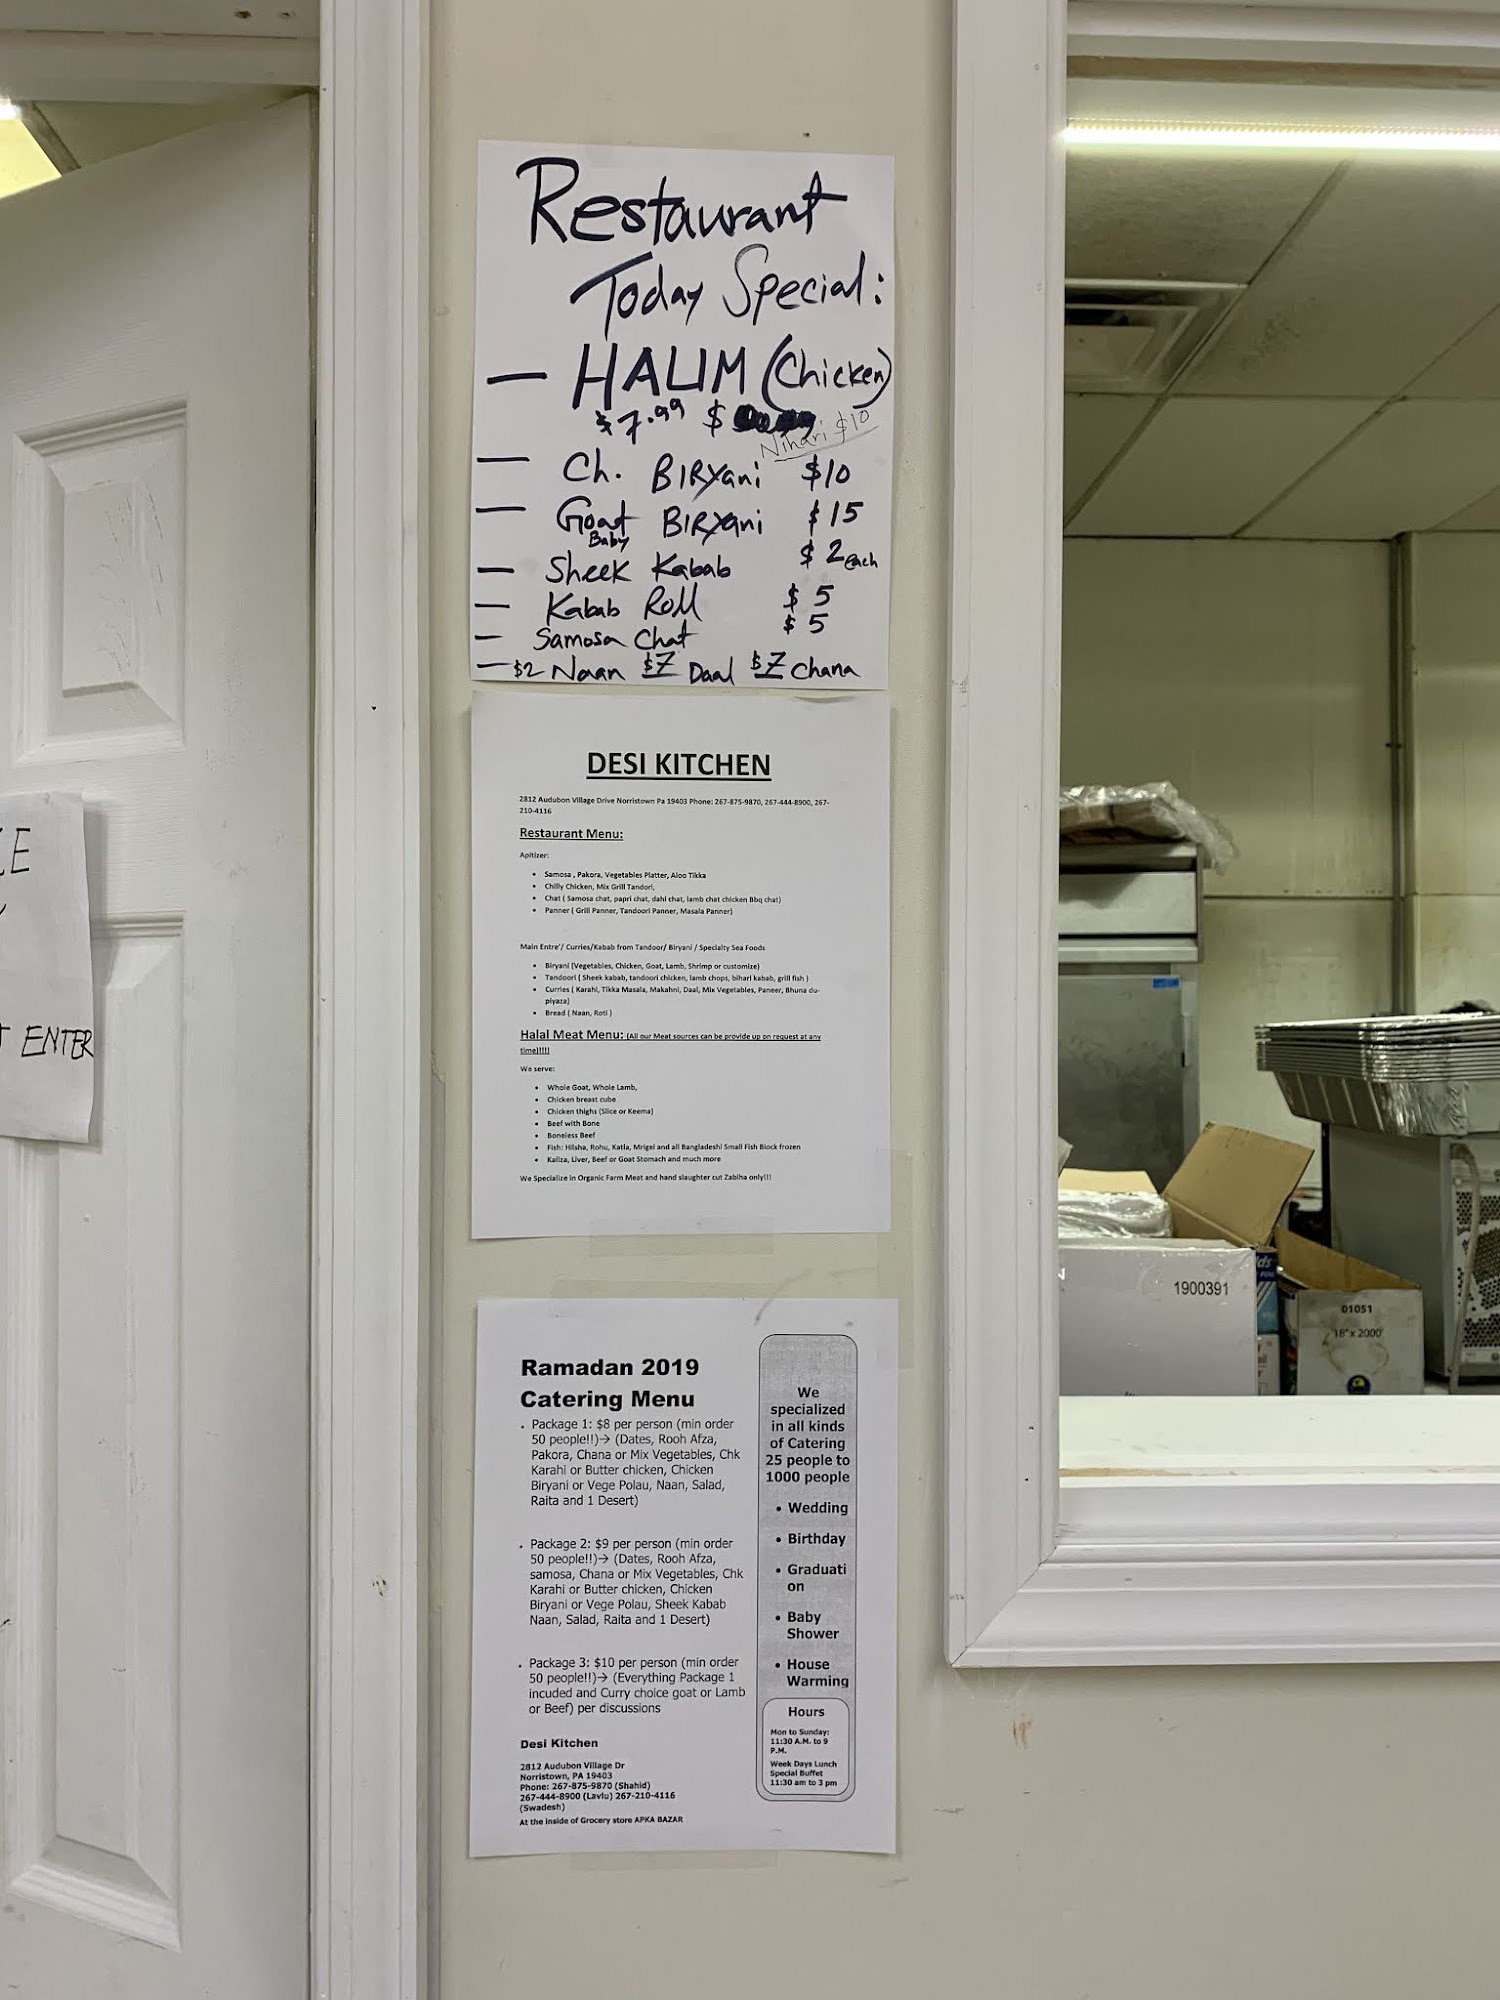 Restaurant
Today Special:
— HALIM (Chicken)
$7.99 $
Nihari $10
— Ch. BIRYani $10
— Goat BIRYani $15
Baby
— Sheek Kabab $2 each
— Kabab Roll $5
— Samosa Chat $5
— $2 Naan $7 Daal $7 Chana
DESI KITCHEN
2812 Audubon Village Drive Norristown Pa 19403 Phone: 267-875-9870, 267-444-8900, 267-
210-4116
Restaurant Menu:
Apitizer:
• Samosa , Pakora, Vegetables Platter, Aloo Tikka
• Chilly Chicken, Mix Grill Tandori,
• Chat ( Samosa chat, papri chat, dahi chat, lamb chat chicken Bbq chat)
• Panner ( Grill Panner, Tandoori Panner, Masala Panner)
Main Entre'/ Curries/Kabab from Tandoor/ Biryani / Specialty Sea Foods
• Biryani (Vegetables, Chicken, Goat, Lamb, Shrimp or customize)
• Tandoori ( Sheek kabab, tandoori chicken, lamb chops, bihari kabab, grill fish )
• Curries ( Karahi, Tikka Masala, Makahni, Daal, Mix Vegetables, Paneer, Bhuna du-
piyaza)
• Bread ( Naan, Roti )
Halal Meat Menu: (All our Meat sources can be provide up on request at any
time)!!!!
We serve:
• Whole Goat, Whole Lamb,
• Chicken breast cube
• Chicken thighs (Slice or Keema)
• Beef with Bone
• Boneless Beef
• Fish: Hilsha, Rohu, Katla, Mrigel and all Bangladeshi Small Fish Block frozen
• Kaliza, Liver, Beef or Goat Stomach and much more
We Specialize in Organic Farm Meat and hand slaughter cut Zabiha only!!!
Ramadan 2019
Catering Menu
• Package 1: $8 per person (min order
50 people!!)→ (Dates, Rooh Afza,
Pakora, Chana or Mix Vegetables, Chk
Karahi or Butter chicken, Chicken
Biryani or Vege Polau, Naan, Salad,
Raita and 1 Desert)
• Package 2: $9 per person (min order
50 people!!)→ (Dates, Rooh Afza,
samosa, Chana or Mix Vegetables, Chk
Karahi or Butter chicken, Chicken
Biryani or Vege Polau, Sheek Kabab
Naan, Salad, Raita and 1 Desert)
• Package 3: $10 per person (min order
50 people!!)→ (Everything Package 1
incuded and Curry choice goat or Lamb
or Beef) per discussions
Desi Kitchen
2812 Audubon Village Dr
Norristown, PA 19403
Phone: 267-875-9870 (Shahid)
267-444-8900 (Lavlu) 267-210-4116
(Swadesh)
At the inside of Grocery store APKA BAZAR
We
specialized
in all kinds
of Catering
25 people to
1000 people
• Wedding
• Birthday
• Graduati
on
• Baby
Shower
• House
Warming
Hours
Mon to Sunday:
11:30 A.M. to 9
P.M.
Week Days Lunch
Special Buffet
11:30 am to 3 pm
ENTER
1900391
01051
18"x 2000'